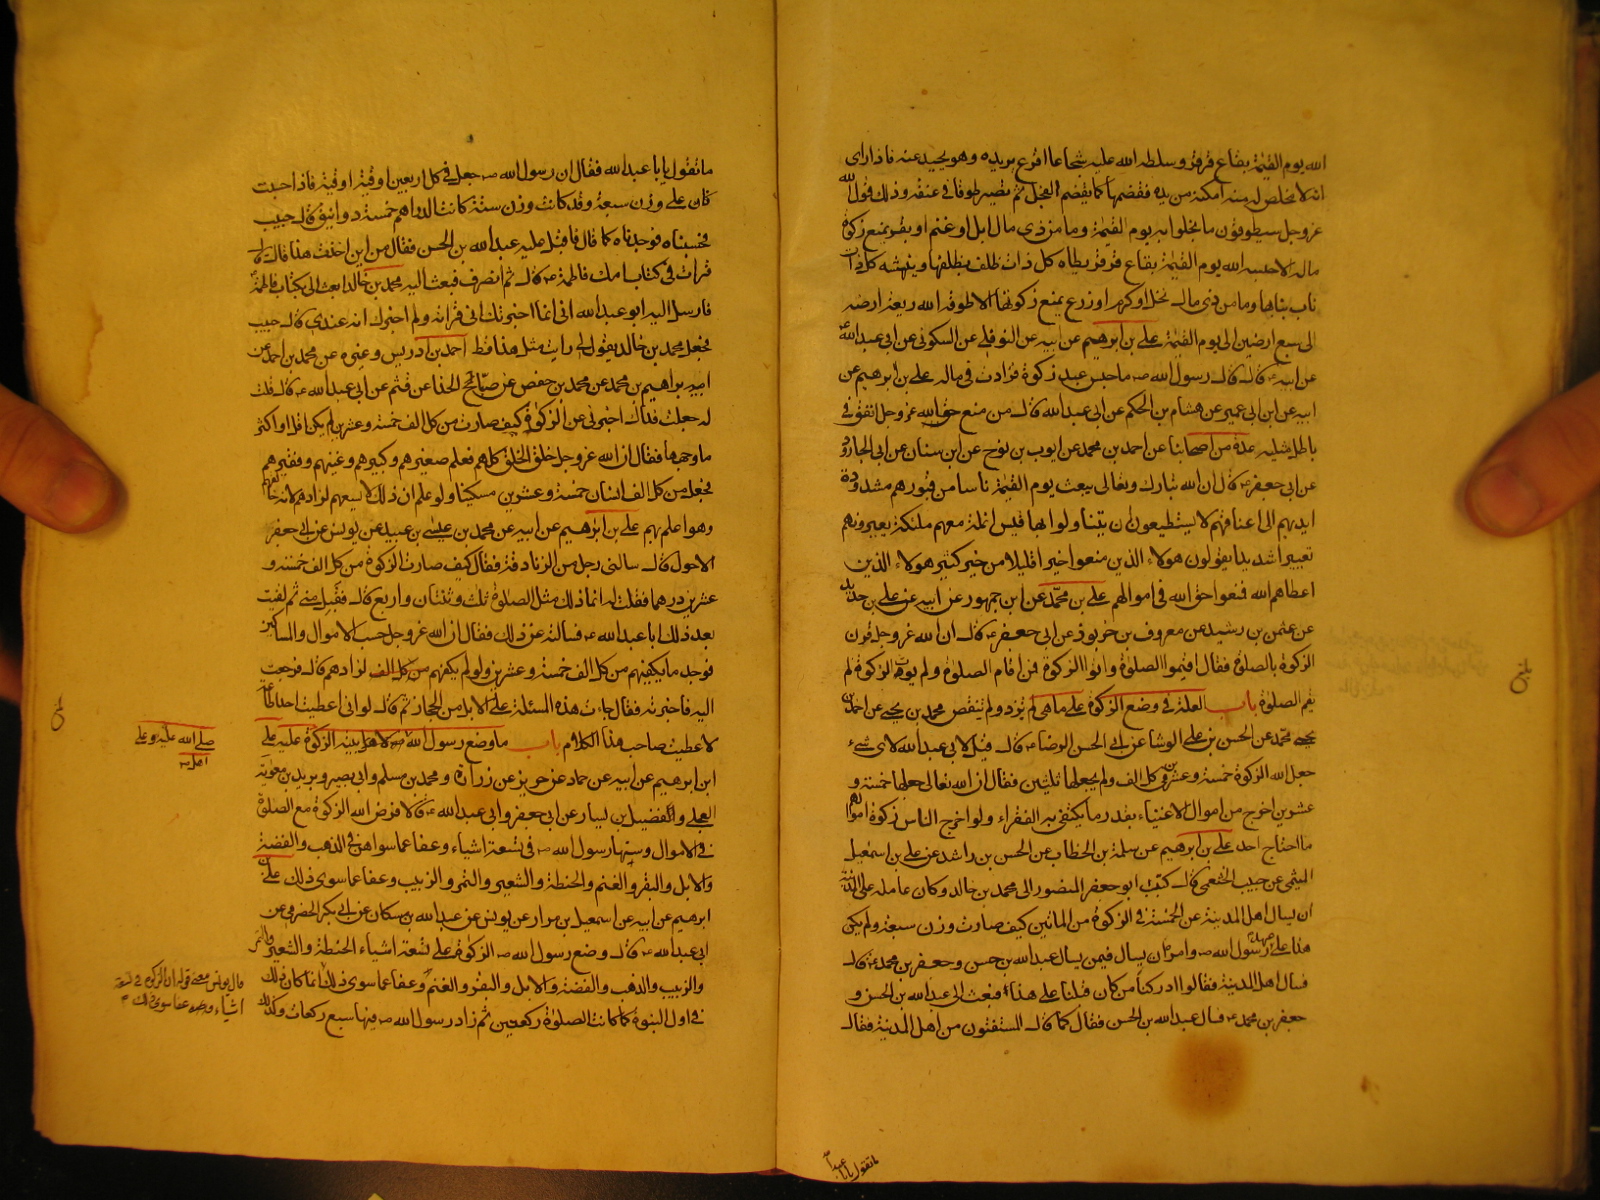 الله يوم القيمة بقاع قرقر وسلطه الله عليه شجاعا اقرع يريده وهو يحيد عنه فاذا راى
انه لا يخلص له منه امكنه من يده فقضمها كما يقضم الفجل ثم تصير طوقا فى عنقه وذلك قول الله
عز وجل سيطوقون ما بخلوا به يوم القيمة وما من ذى مال ابل او غنم او بقر يمنع زكوة
ماله الا حبسه الله يوم القيمة بقاع قرقر يطاه كل ذات ظلف بظلفها وينهشه كل ذات
ناب بنابها وما من ذى مال نخل او كرم او زرع يمنع زكوتها الا طوقه الله ريعة ارضه
الى سبع ارضين الى يوم القيمة على بن ابرهيم عن ابيه عن النوفلى عن السكونى عن ابى عبد الله
عن ابيه قال قال رسول الله ص ما حبس عبد زكوة فزادت فى ماله على بن ابرهيم عن
ابيه عن ابن ابى عمير عن هشام بن الحكم عن ابى عبد الله قال من منع حق الله عز وجل انفق فى
باطل مثليه عدة من اصحابنا عن احمد بن محمد عن ايوب بن نوح عن ابن سنان عن ابى الجارود
عن ابى جعفر قال ان الله تبارك وتعالى يبعث يوم القيمة ناسا من قبورهم مشدودة
ايديهم الى اعناقهم لا يستطيعون ان يتناولوا بها قيس انملة معهم ملئكة يعيرونهم
تعييرا شديدا يقولون هولاء الذين منعوا خيرا قليلا من خير كثير هولاء الذين
اعطاهم الله فمنعوا حق الله فى اموالهم على بن محمد عن ابن جمهور عن ابيه عن على بن حديد
عن عثمن بن رشيد عن معروف بن خربوذ عن ابى جعفر قال ان الله عز وجل قرن
الزكوة بالصلوة فقال اقيموا الصلوة واتوا الزكوة فمن اقام الصلوة ولم يوت الزكوة لم
يقم الصلوة باب العلة فى وضع الزكوة على ما هى لم تزد ولم تنقص محمد بن يحيى عن احمد بن
محمد عن الحسن بن على الوشا عن ابى الحسن الرضا قال قيل لابى عبد الله لاى شىء
جعل الله الزكوة خمسة وعشرين فى كل الف ولم يجعلها ثلثين فقال ان الله تعالى جعلها خمسة و
عشرين اخرج من اموال الاغنياء بقدر ما يكتفى به الفقراء ولو اخرج الناس زكوة اموالهم
ما احتاج احد على بن ابرهيم عن سلمة بن الخطاب عن الحسن بن راشد عن على بن اسمعيل
الميثمى عن حبيب الخثعمى قال كتب ابو جعفر المنصور الى محمد بن خالد وكان عامله على المدينة
ان يسال اهل المدينة عن الخمسة فى الزكوة من المائتين كيف صارت وزن سبعة ولم يكن
هذا على عهد رسول الله ص وامره ان يسال فيمن يسال عبد الله بن حسن وجعفر بن محمد قال
فسال اهل المدينة فقالوا ادركنا من كان قبلنا على هذا فبعث الى عبد الله بن الحسن و
جعفر بن محمد فسال عبد الله بن الحسن فقال كما قال المستفتون من اهل المدينة فقال
ما تقول يابا عبد
ما تقول يابا عبد الله فقال ان رسول الله ص جعل فى كل اربعين اوقية اوقية فاذا حسبت
كان على وزن سبعة وقد كانت وزن ستة كانت الدراهم خمسة دوانيق قال حبيب
فحسبناه فوجدناه كما قال فاقبل عليه عبد الله بن الحسن فقال من اين اخذت هذا قال
قرات فى كتاب امك فاطمة قال ثم انصرف فبعث اليه محمد بن خالد ابعث الى بكتاب فاطمة
فارسل اليه ابو عبد الله انى انما اخبرتك انى قراته ولم اخبرك انه عندى قال حبيب
فجعل محمد بن خالد يقول لى ما رايت مثل هذا قط احمد بن ادريس وغيره عن محمد بن احمد عن
ابرهيم بن محمد عن محمد بن حفص عن صباح الحذا عن قثم عن ابى عبد الله قال قلت
له جعلت فداك اخبرنى عن الزكوة كيف صارت من كل الف خمسة وعشرين لم يكن اقل او اكثر
ما وجهها فقال ان الله عز وجل خلق الخلق كلهم فعلم صغيرهم وكبيرهم وغنيهم وفقيرهم
فجعل من كل الف انسان خمسة وعشرين مسكينا ولو علم ان ذلك لا يسعهم لزادهم لانه خالقهم
وهو اعلم بهم على بن ابرهيم عن ابيه عن محمد بن عيسى بن عبيد عن يونس عن ابى جعفر
الاحول قال سالنى رجل من الزنادقة فقال كيف صارت الزكوة من كل الف خمسة و
عشرين درهما فقلت له انما ذلك مثل الصلوة ثلث وثنتان واربع قال فقبل منى ثم لقيت
بعد ذلك ابا عبد الله فسالته عن ذلك فقال ان الله عز وجل حسب الاموال والمساكين
فوجد ما يكفيهم من كل الف خمسة وعشرين ولو لم يكفهم من كل الف لزادهم قال فرجعت
اليه فاخبرته فقال جاءت هذه المسئلة على الابل من الحجاز ثم قال لو انى اعطيت احدا طاعة
لاعطيت صاحب هذا الكلام باب ما وضع رسول الله اهل بيته الزكوة عليه على
صلى الله عليه وعلى
اهل بيته
ابن ابرهيم عن ابيه عن حماد عن حريز عن زرارة ومحمد بن مسلم وابى بصير وبريد بن معوية
العجلى والفضيل بن يسار عن ابى جعفر وابى عبد الله قالا فرض الله الزكوة مع الصلوة
فى الاموال وسنها رسول الله ص فى تسعة اشياء وعفا عما سواهن فى الذهب والفضة
والابل والبقر والغنم والحنطة والشعير والتمر والزبيب وعفا عما سوى ذلك على بن
ابرهيم عن ابيه عن اسمعيل بن مرار عن يونس عن عبد الله بن مسكان عن ابى بكر الحضرمى عن
ابى عبد الله قال وضع رسول الله ص الزكوة على تسعة اشياء الحنطة والشعير والتمر
والزبيب والذهب والفضة والابل والبقر والغنم وعفا عما سوى ذلك انما كان ذلك
قال يونس معنى قوله ان الزكوة فى تسعة
اشياء وعفا عما سوى ذلك
فى اول النبوة كما كانت الصلوة ركعتين ثم زاد رسول الله ص فيها سبع ركعات وكذلك